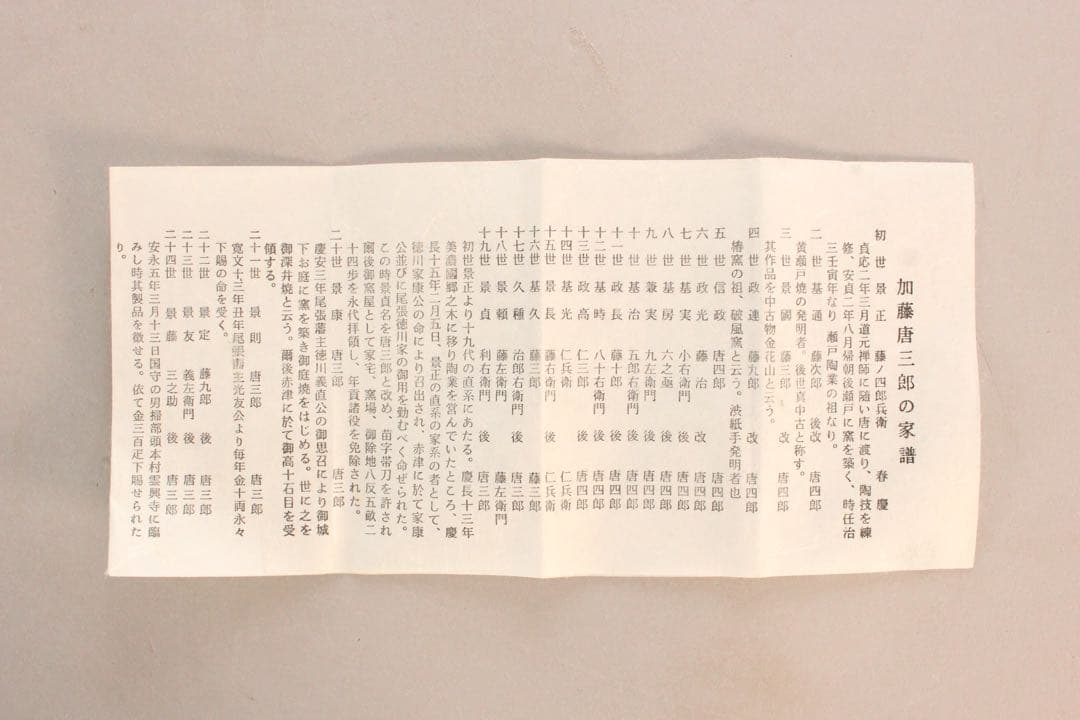 加藤唐三郎の家譜
初世 景正 藤ノ四郎兵衛 春慶
貞応二年三月道元禅師に随い唐に渡り、陶技を練
修、安貞二年八月帰朝後瀬戸に窯を築く、時任治
三壬寅年なり 瀬戸陶業の祖なり。
二世 基通 藤次郎 後改 唐四郎
黄瀬戸焼の発明者。後世真中古と称す。
三世 景國 藤三郎 改 唐四郎
其作品を中古物金花山と云う。
四世 政連 藤九郎 改 唐四郎
椿窯の祖、破風窯と云う。渋紙手発明者也
五世 信政 唐四郎 唐四郎
六世 政光 藤治 改 唐四郎
七世 基実 小右衛門 唐四郎
八世 基房 六之亟 後 唐四郎
九世 兼実 九左衛門 後 唐四郎
十世 基治 五郎右衛門 後 唐四郎
十一世 政長 藤十郎 後 唐四郎
十二世 基時 八十右衛門 後 唐四郎
十三世 政高 仁三郎 後 唐四郎
十四世 基光 仁兵衛 仁兵衛
十五世 景長 藤左衛門 後 仁兵衛
十六世 基久 藤三郎 藤三郎
十七世 久種 治郎右衛門 後 唐三郎
十八世 景頼 藤左衛門 藤左衛門
十九世 景貞 利右衛門 後 唐三郎
初世景正より十九代の直系にあたる。慶長十三年
美濃國郷之木に移り陶業を営んでいたところ、慶
長十五年二月五日、景正の直系の家系の者として、
徳川家康公の命により召出され、赤津に於て家康
公並びに尾張徳川家の御用を勤むべく命ぜられた。
この時景貞名を唐三郎と改め、苗字帯刀を許され
爾後御窯屋として家宅、窯場、御除地八反五畝二
十四歩を永代拝領し、年貢諸役を免除された。
二十世 景康 唐三郎 唐三郎
慶安三年尾張藩主徳川義直公の御思召により御城
下お庭に窯を築き御庭焼をはじめる。世に之を
御深井焼と云う。爾後赤津に於て御高十石目を受
領する。
二十一世 景則 唐三郎 唐三郎
寛文十三年丑年尾張藩主光友公より毎年金十両永々
下賜の命を受く。
二十二世 景定 藤九郎 後 唐三郎
二十三世 景友 義左衛門 後 唐三郎
二十四世 景藤 三之助 後 唐三郎
安永五年三月十三日国守の男掃部頭本村雲興寺に臨
みし時其製品を徴せる。依て金三百疋下賜せられた
り。